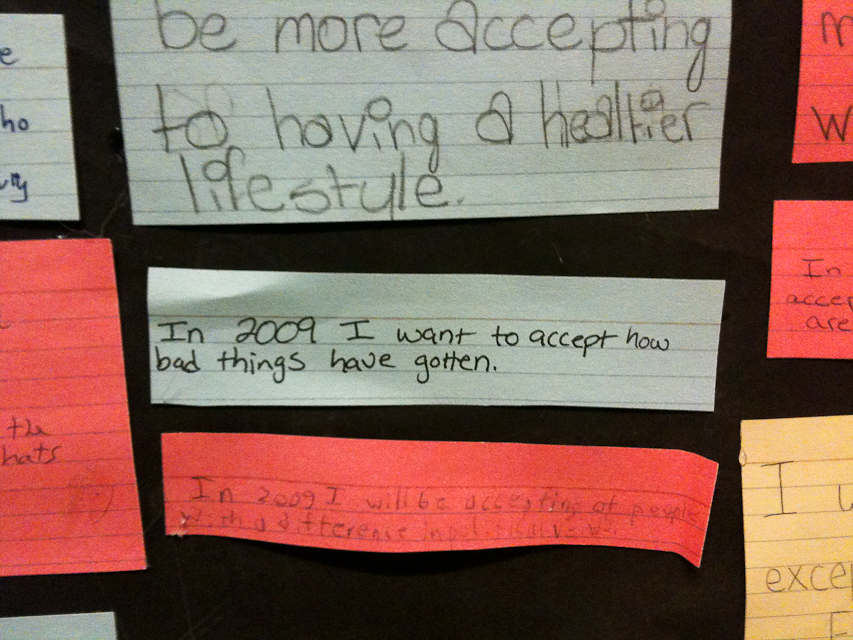 be more accepting
to having a healtier
lifestyle.
In 2009 I want to accept how
bad things have gotten.
In 2009 I will be accepting of people
with a difference in
the
hats
ho
In
are
I